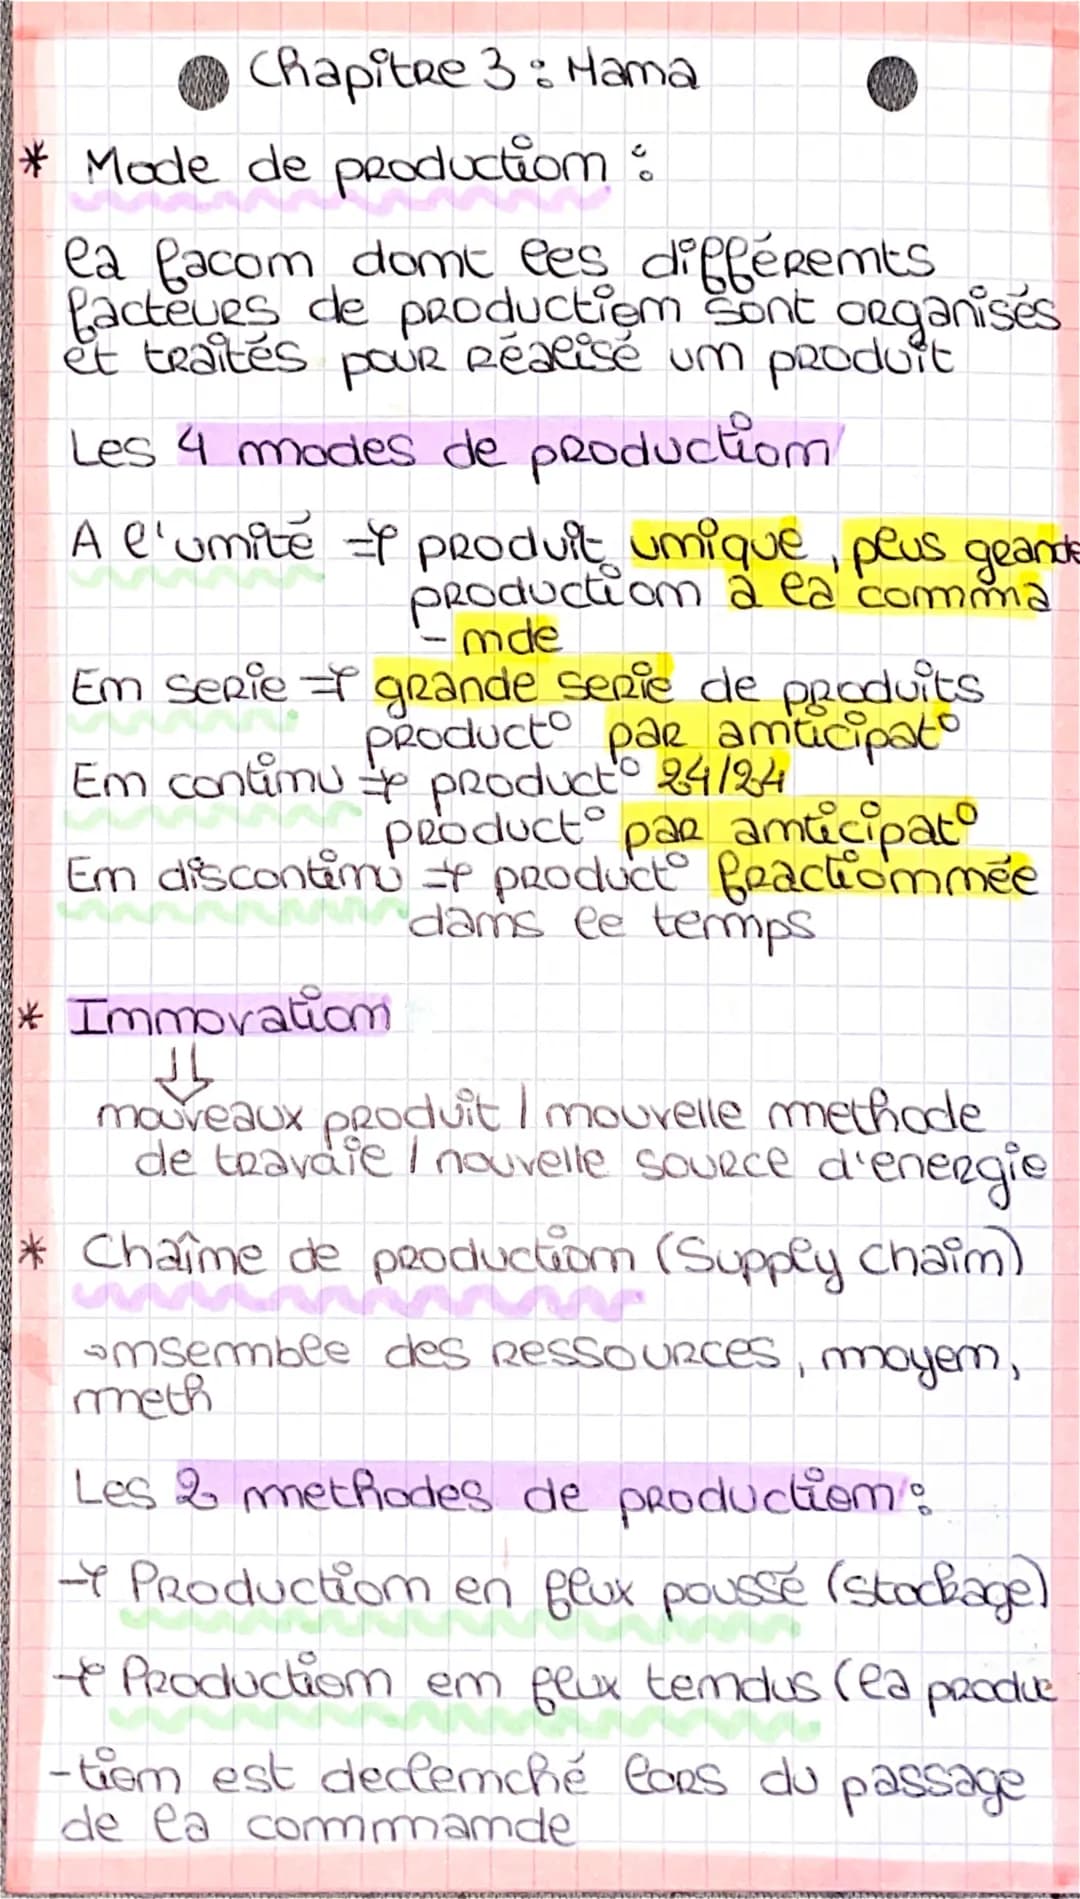 Chapitre 3 : Mana
* Mode de production :
la façon dont les différents
facteurs de production sont organisés
et traités pour réalisé un produit
Les 4 modes de production
A l'unité → produit unique, plus geande
production a la comma
- nde
En serie → grande serie de produits
product° par anticipat°
En continu → product° 24/24
product° par anticipat°
En discontinu → product° fractionnée
dans le temps
* Innovation
⇓
nouveaux produit / nouvelle methode
de travail / nouvelle source d'energie
* Chaîne de production (Supply chain)
ensemble des ressources, moyen,
meth
Les 2 methodes de production :
→ Production en flux poussé (stockage)
→ Production en flux tendus (la produc
-tion est declenché lors du passage
de la commande